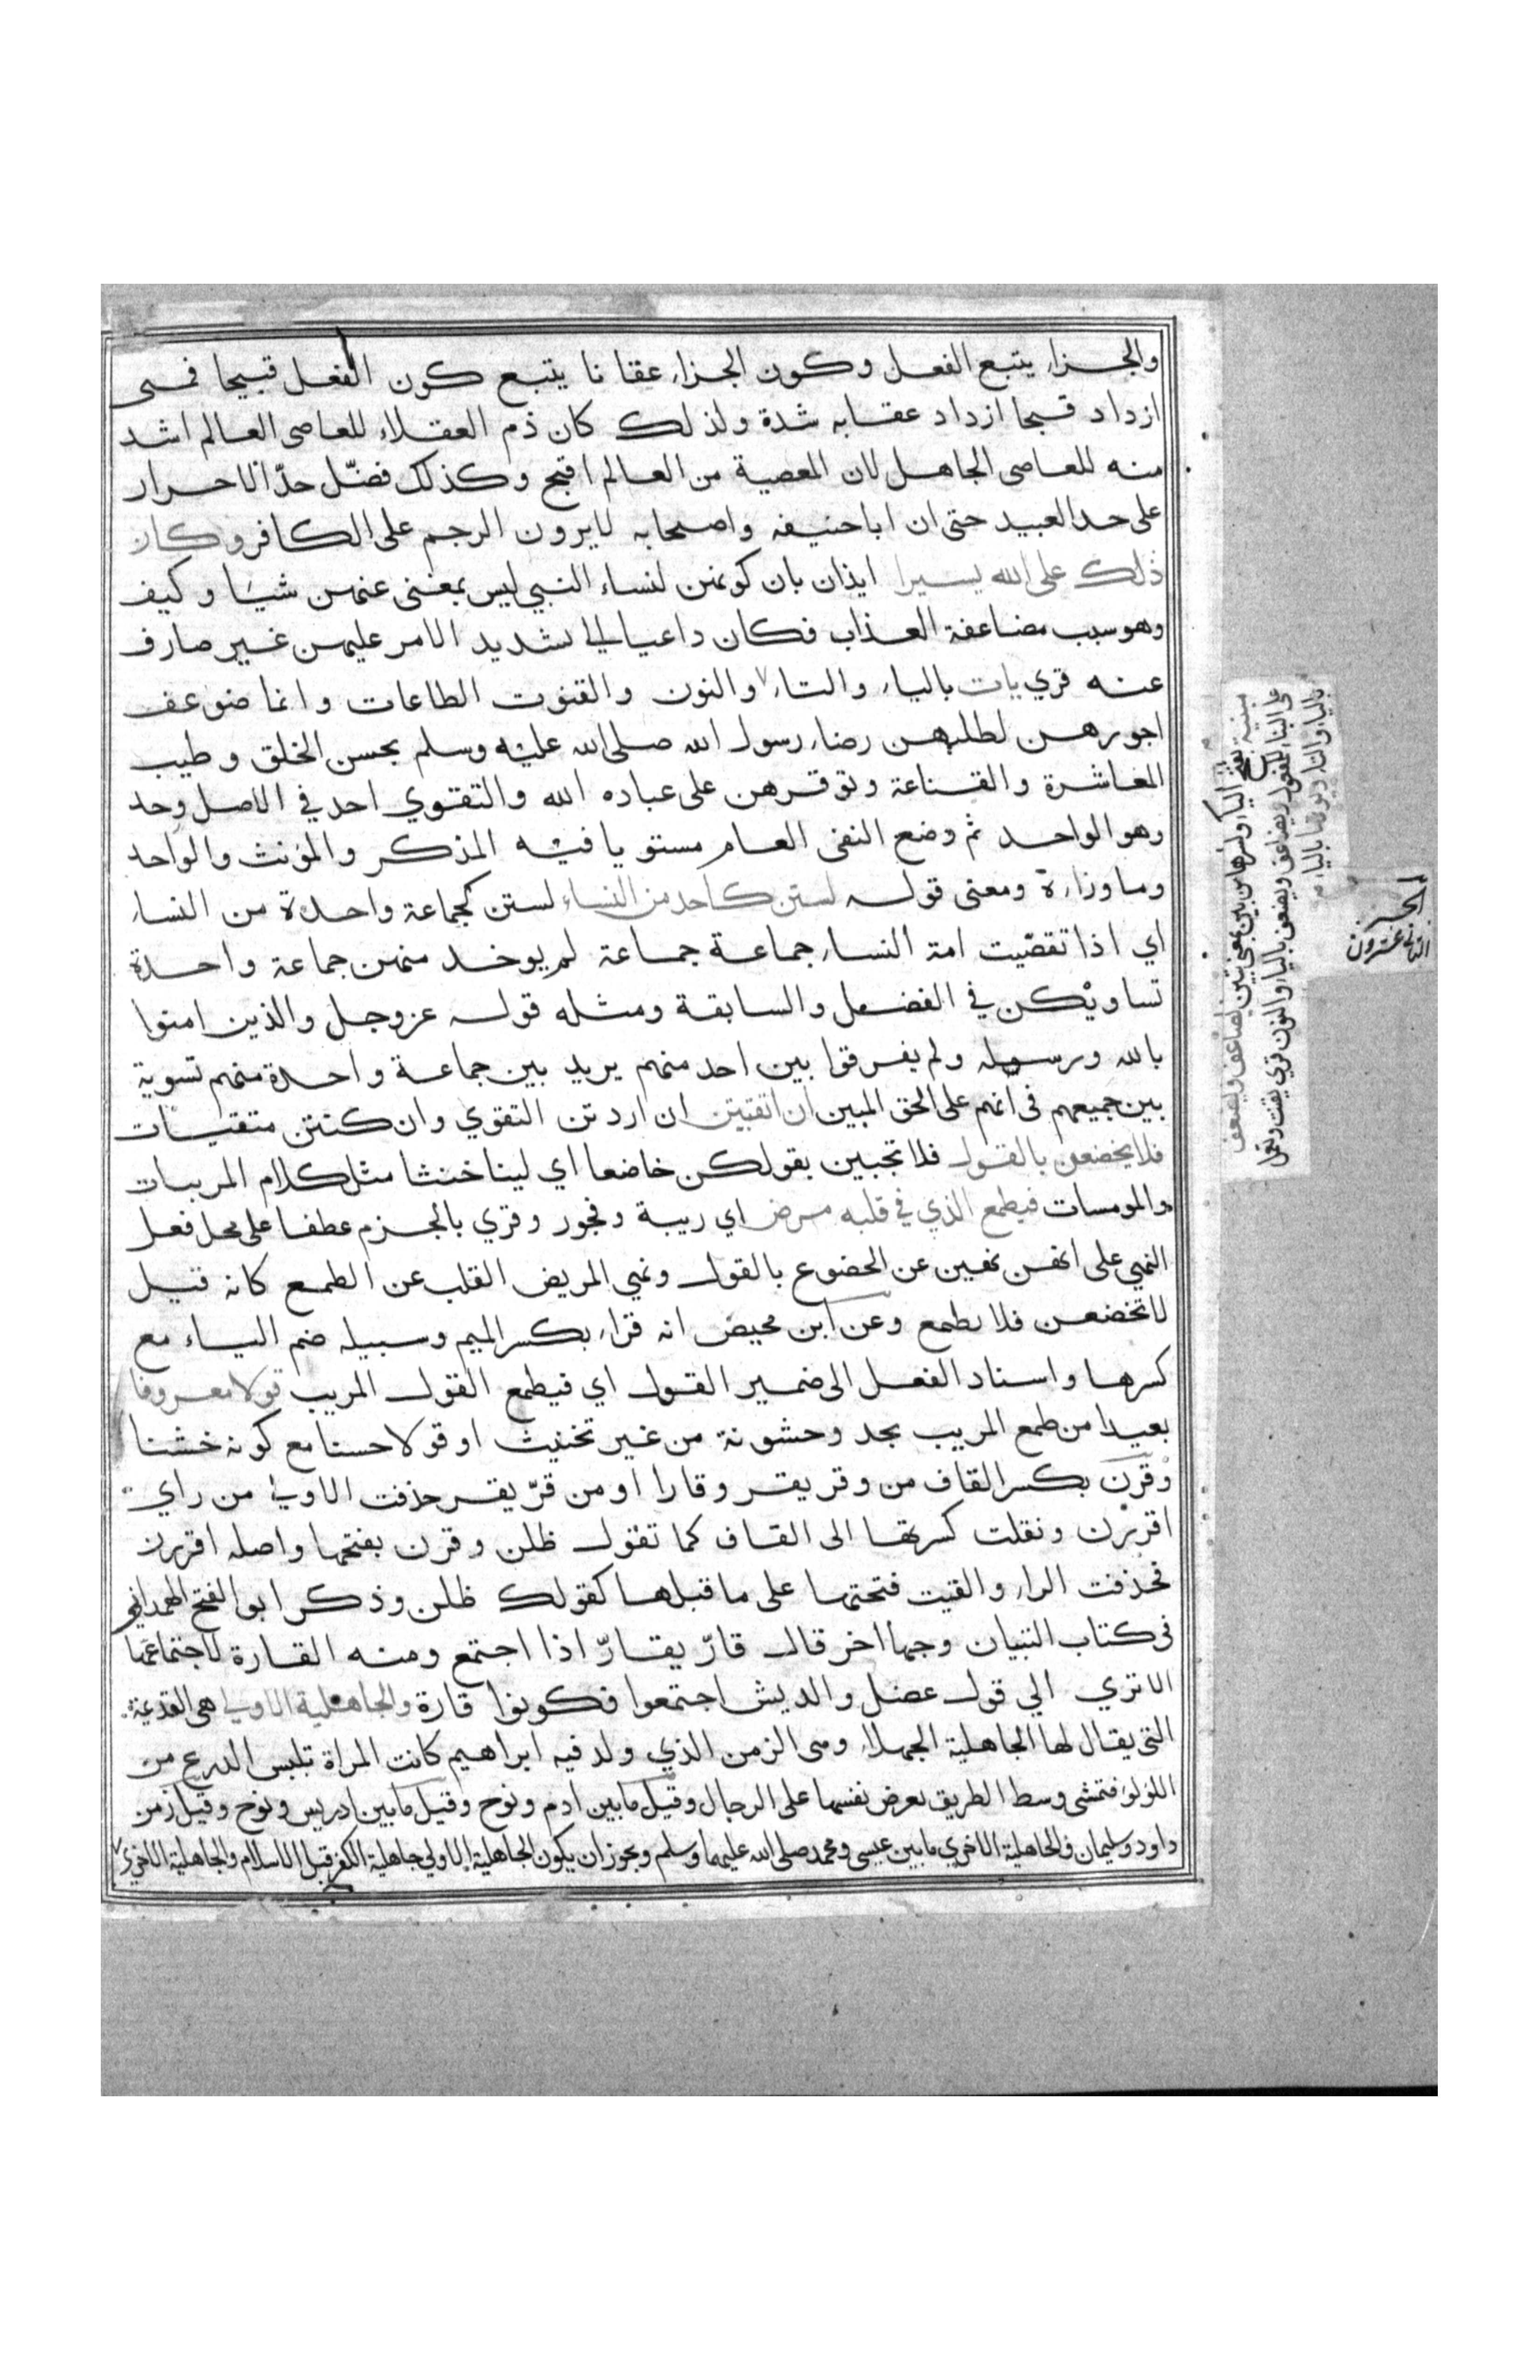 والجزاء يتبع الفعل وكون الجزاء عقابا يتبع كون الفعل قبيحا فمتى
ازداد قبحا ازداد عقابه شدة ولذلك كان ذم العقلاء للعاصى العالم اشد
منه للعاصى الجاهل لان المعصية من العالم اقبح وكذلك فضّل حدّ الاحرار
على حد العبيد حتى ان اباحنيفه واصحابه لايرون الرجم على الكافر وكان
ذلك على الله يسيرا ايذان بان كونهن لنساء النبي ليس بمغنى عنهن شيئا وكيف
وهو سبب مضاعفة العذاب فكان داعيا الي تشديد الامر عليهن غير صارف
عنه قري يات بالياء والتاء والنون والقنوت الطاعات وانما ضوعف
اجورهن لطلبهن رضاء رسول الله صلى الله عليه وسلم بحسن الخلق وطيب
المعاشرة والقناعة وتوقرهن على عباده الله والتقوي احد في الاصل وحد
وهو الواحد ثم وضع النفى العام مستويا فيه المذكر والمؤنث والواحد
وما وراءة ومعنى قوله لستن كاحد من النساء لستن كجماعة واحدة من النساء
اي اذا تقصّيت امة النساء جماعة جماعة لم يوخد منهن جماعة واحدة
تساويكن في الفضل والسابقة ومثله قوله عزوجل والذين امنوا
بالله ورسوله ولم يفرقوا بين احد منهم يريد بين جماعة واحدة منهم تسوية
بين جميعهم فى انهم على الحق المبين ان اتقيتن ان اردتن التقوي وان كنتن متقيات
فلا تخضعن بالقول فلا تجبين بقولكن خاضعا اي لينا خنثا مثل كلام المريبات
والمومسات فيطمع الذي في قلبه مرض اي ريبة وفجور وقري بالجزم عطفا على محل فعل
النهي على انهن نهين عن الخضوع بالقول ونهي المريض القلب عن الطمع كانه قيل
لا تخضعن فلا يطمع وعن ابن محيض انه قراء بكسر الميم وسبيله ضم الياء مع
كسرها واسناد الفعل الى ضمير القول اي فيطمع القول المريب قولا معروفا
بعيدا من طمع المريب بجد وخشونة من غير تخنيث او قولا حسنا مع كونه خشنا
وقرن بكسر القاف من وقر يقر وقارا او من قرّ يقر حذفت الاولي من راي
اقررن ونقلت كسرتها الى القاف كما تقول ظلن وقرن بفتحها واصله اقررن
فحذفت الراء والقيت فتحتها على ما قبلها كقولك ظلن وذكر ابو الفتح الهمداني
فى كتاب التبيان وجها اخر قال قارّ يقارّ اذا اجتمع ومنه القارة لاجتماعها
الا تري الي قول عضل والديش اجتمعوا فكونوا قارة والجاهلية الاولي هى القديمة
التى يقال لها الجاهلية الجهلاء ومى الزمن الذي ولد فيه ابراهيم كانت المراة تلبس الدرع من
اللؤلؤ فتمشى وسط الطريق تعرض نفسها على الرجال وقيل ما بين ادم ونوح وقيل ما بين ادريس ونوح وقيل زمن
داود وسليمان والجاهلية الاخري ما بين عيسى ومحمد صلى الله عليهما وسلم ويجوز ان يكون الجاهلية الاولي جاهلية الكفر قبل الاسلام والجاهلية الاخري
مبينة بفتح الياء وكسرها من بين بمعنى تبين يضاعف ويضعف
على البناء للمفعول ويضاعف ويضعف بالياء والنون قري يقنت وتعمل
بالياء والتاء ويوتها بالياء
الجزء
الثانى عشرون